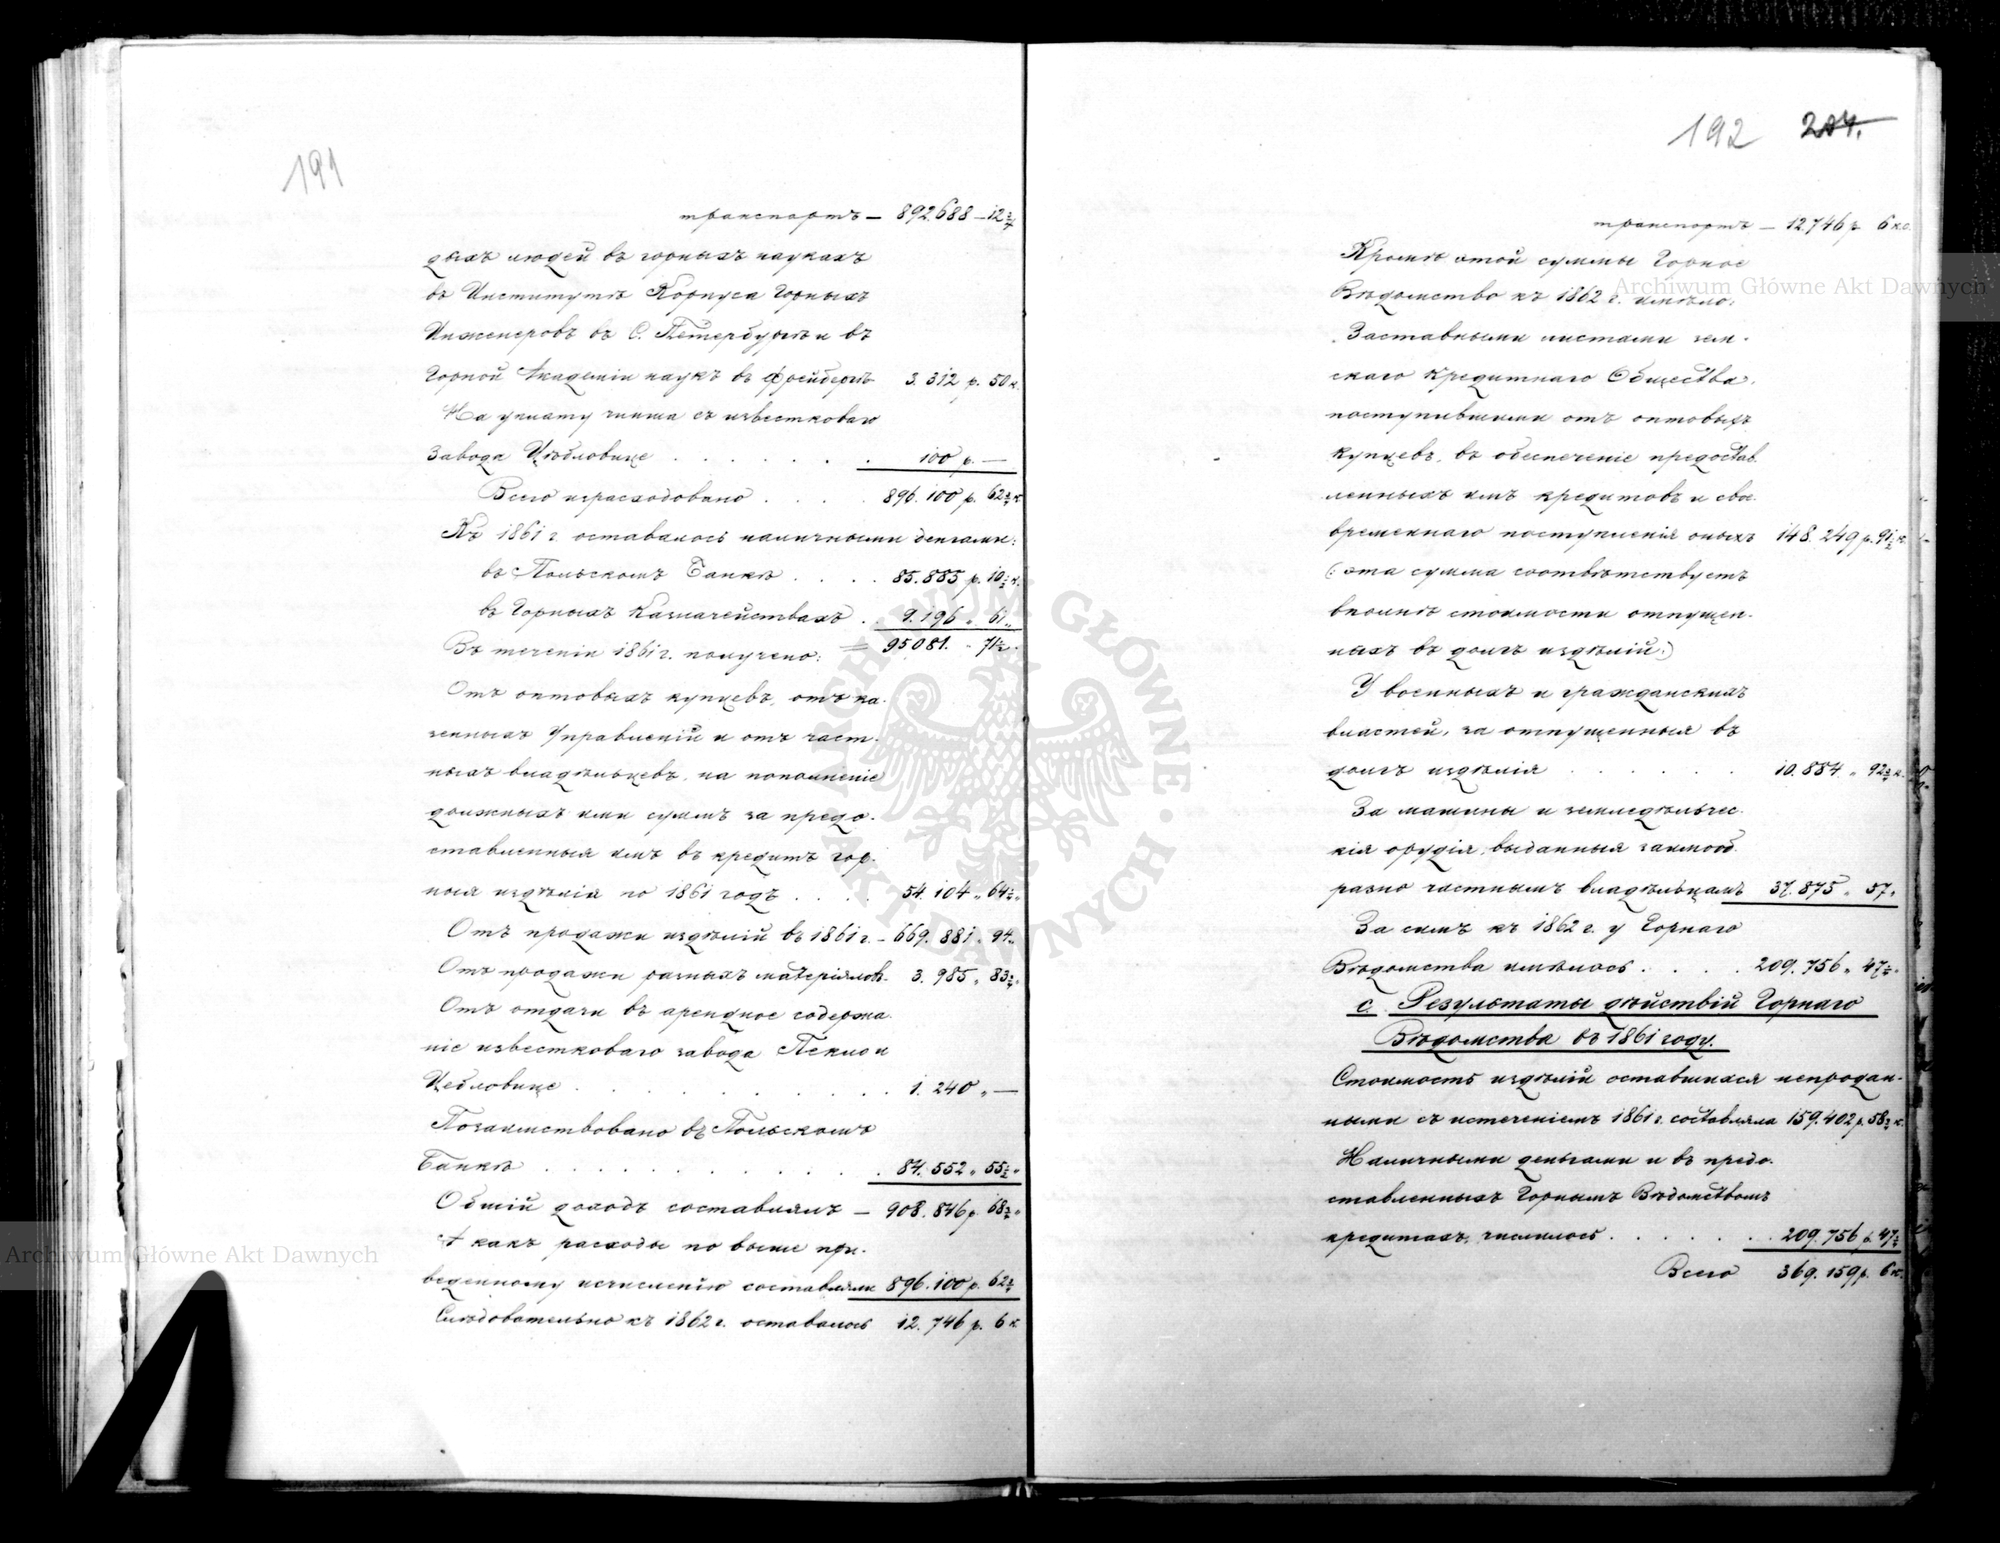 191
транспортъ — 892.688 — 12 3/4
дыхъ людей въ горныхъ наукахъ
въ Институтѣ Корпуса Горныхъ
Инженеровъ въ С. Петербургѣ и въ
Горной Академіи наукъ въ Фрейбергѣ 3.312 р. 50 к.
На уплату чинша съ известковаго
Завода Цѣбловице . . . . . . 100 р. —
Всего израсходовано . . . . 896.100 р. 62 3/4 к
Къ 1861 г. оставалось наличными деньгами:
въ Польскомъ Банкѣ . . . . 85.885 р. 10 1/2 к.
въ Горныхъ Казначействахъ . . 9.196 „ 61 „
Въ теченіи 1861 г. получено: = 95081. „ 71 1/2 „
Отъ оптовыхъ купцевъ, отъ ка-
зенныхъ Управленій и отъ част-
ныхъ владѣльцевъ, на пополненіе
должныхъ ими суммъ за предо-
ставленныя имъ въ кредитъ гор-
ныя издѣлія по 1861 годъ . . . . 54.104 „ 64 1/2 „
Отъ продажи издѣлій въ 1861 г. — 669.881 „ 94 „
Отъ продажи разныхъ матеріяловъ. 3.985 „ 83 3/4 „
Отъ отдачи въ арендное содержа-
ніе известковаго завода Пекло и
Цебловице . . . . . . . . . 1.240 „ —
Позаимствовано въ Польскомъ
Банкѣ . . . . . . . . . . 84.552 „ 55 1/2 „
Общій доходъ составлялъ — 908.846 р. 68 3/4 „
А какъ расходы по выше при-
веденному исчисленію составляли 896.100 р. 62 3/4
Слѣдовательно къ 1862 г. оставалось 12.746 р. 6 к
192 204.
транспортъ — 12.746 р. 6 к.
Кромѣ этой суммы Горное
Вѣдомство къ 1862 г. имѣло:
Заставными листами зем-
скаго Кредитнаго Общества,
поступившими отъ оптовыхъ
купцевъ, въ обеспеченіе предостав-
ленныхъ имъ кредитовъ и свое-
временнаго поступленія оныхъ 148.249 р. 91 1/2 к.
(: эта сумма соотвѣтствуетъ
вполнѣ стоимости отпущен-
ныхъ въ долгъ издѣлій :)
У военныхъ и гражданскихъ
властей, за отпущенныя въ
долгъ издѣлія . . . . . . 10.884 „ 92 3/4 к.
За машины и земледѣльчес-
кія орудія, выданныя заимооб-
разно частнымъ владѣльцамъ 37.875 „ 57 „
За симъ къ 1862 г. у Горнаго
Вѣдомства имѣлось . . . . 209.756 „ 47 1/4 „
с. Результаты дѣйствій Горнаго
Вѣдомства въ 1861 году.
Стоимость издѣлій оставшихся непродан-
ными съ истеченіемъ 1861 г. составляла 159.402 р. 58 3/4 к.
Наличными деньгами и въ предо-
ставленныхъ Горнымъ Вѣдомствомъ
кредитахъ, числилось . . . . . . 209.756 р. 47 1/4
Всего 369.159 р. 6 к.
Archiwum Główne Akt Dawnych
Archiwum Główne Akt Dawnych
ARCHIWUM GŁÓWNE · AKT DAWNYCH ·